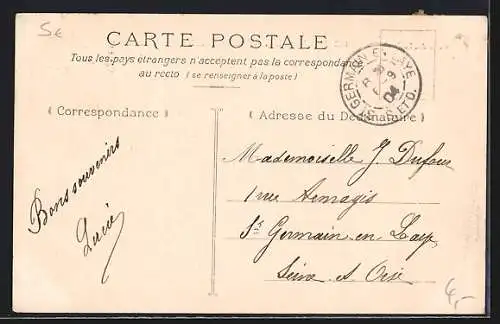 5e
CARTE POSTALE
Tous les pays étrangers n'acceptent pas la correspondance
au recto (se renseigner à la poste)
ST GERMAIN EN LAYE
S. ET O.
04
(Correspondance)
(Adresse du Destinataire)
Mademoiselle J. Dufour
1 rue Armagis
St Germain en Laye
Seine et Oise
Bons souvenirs
Lucie
4,-